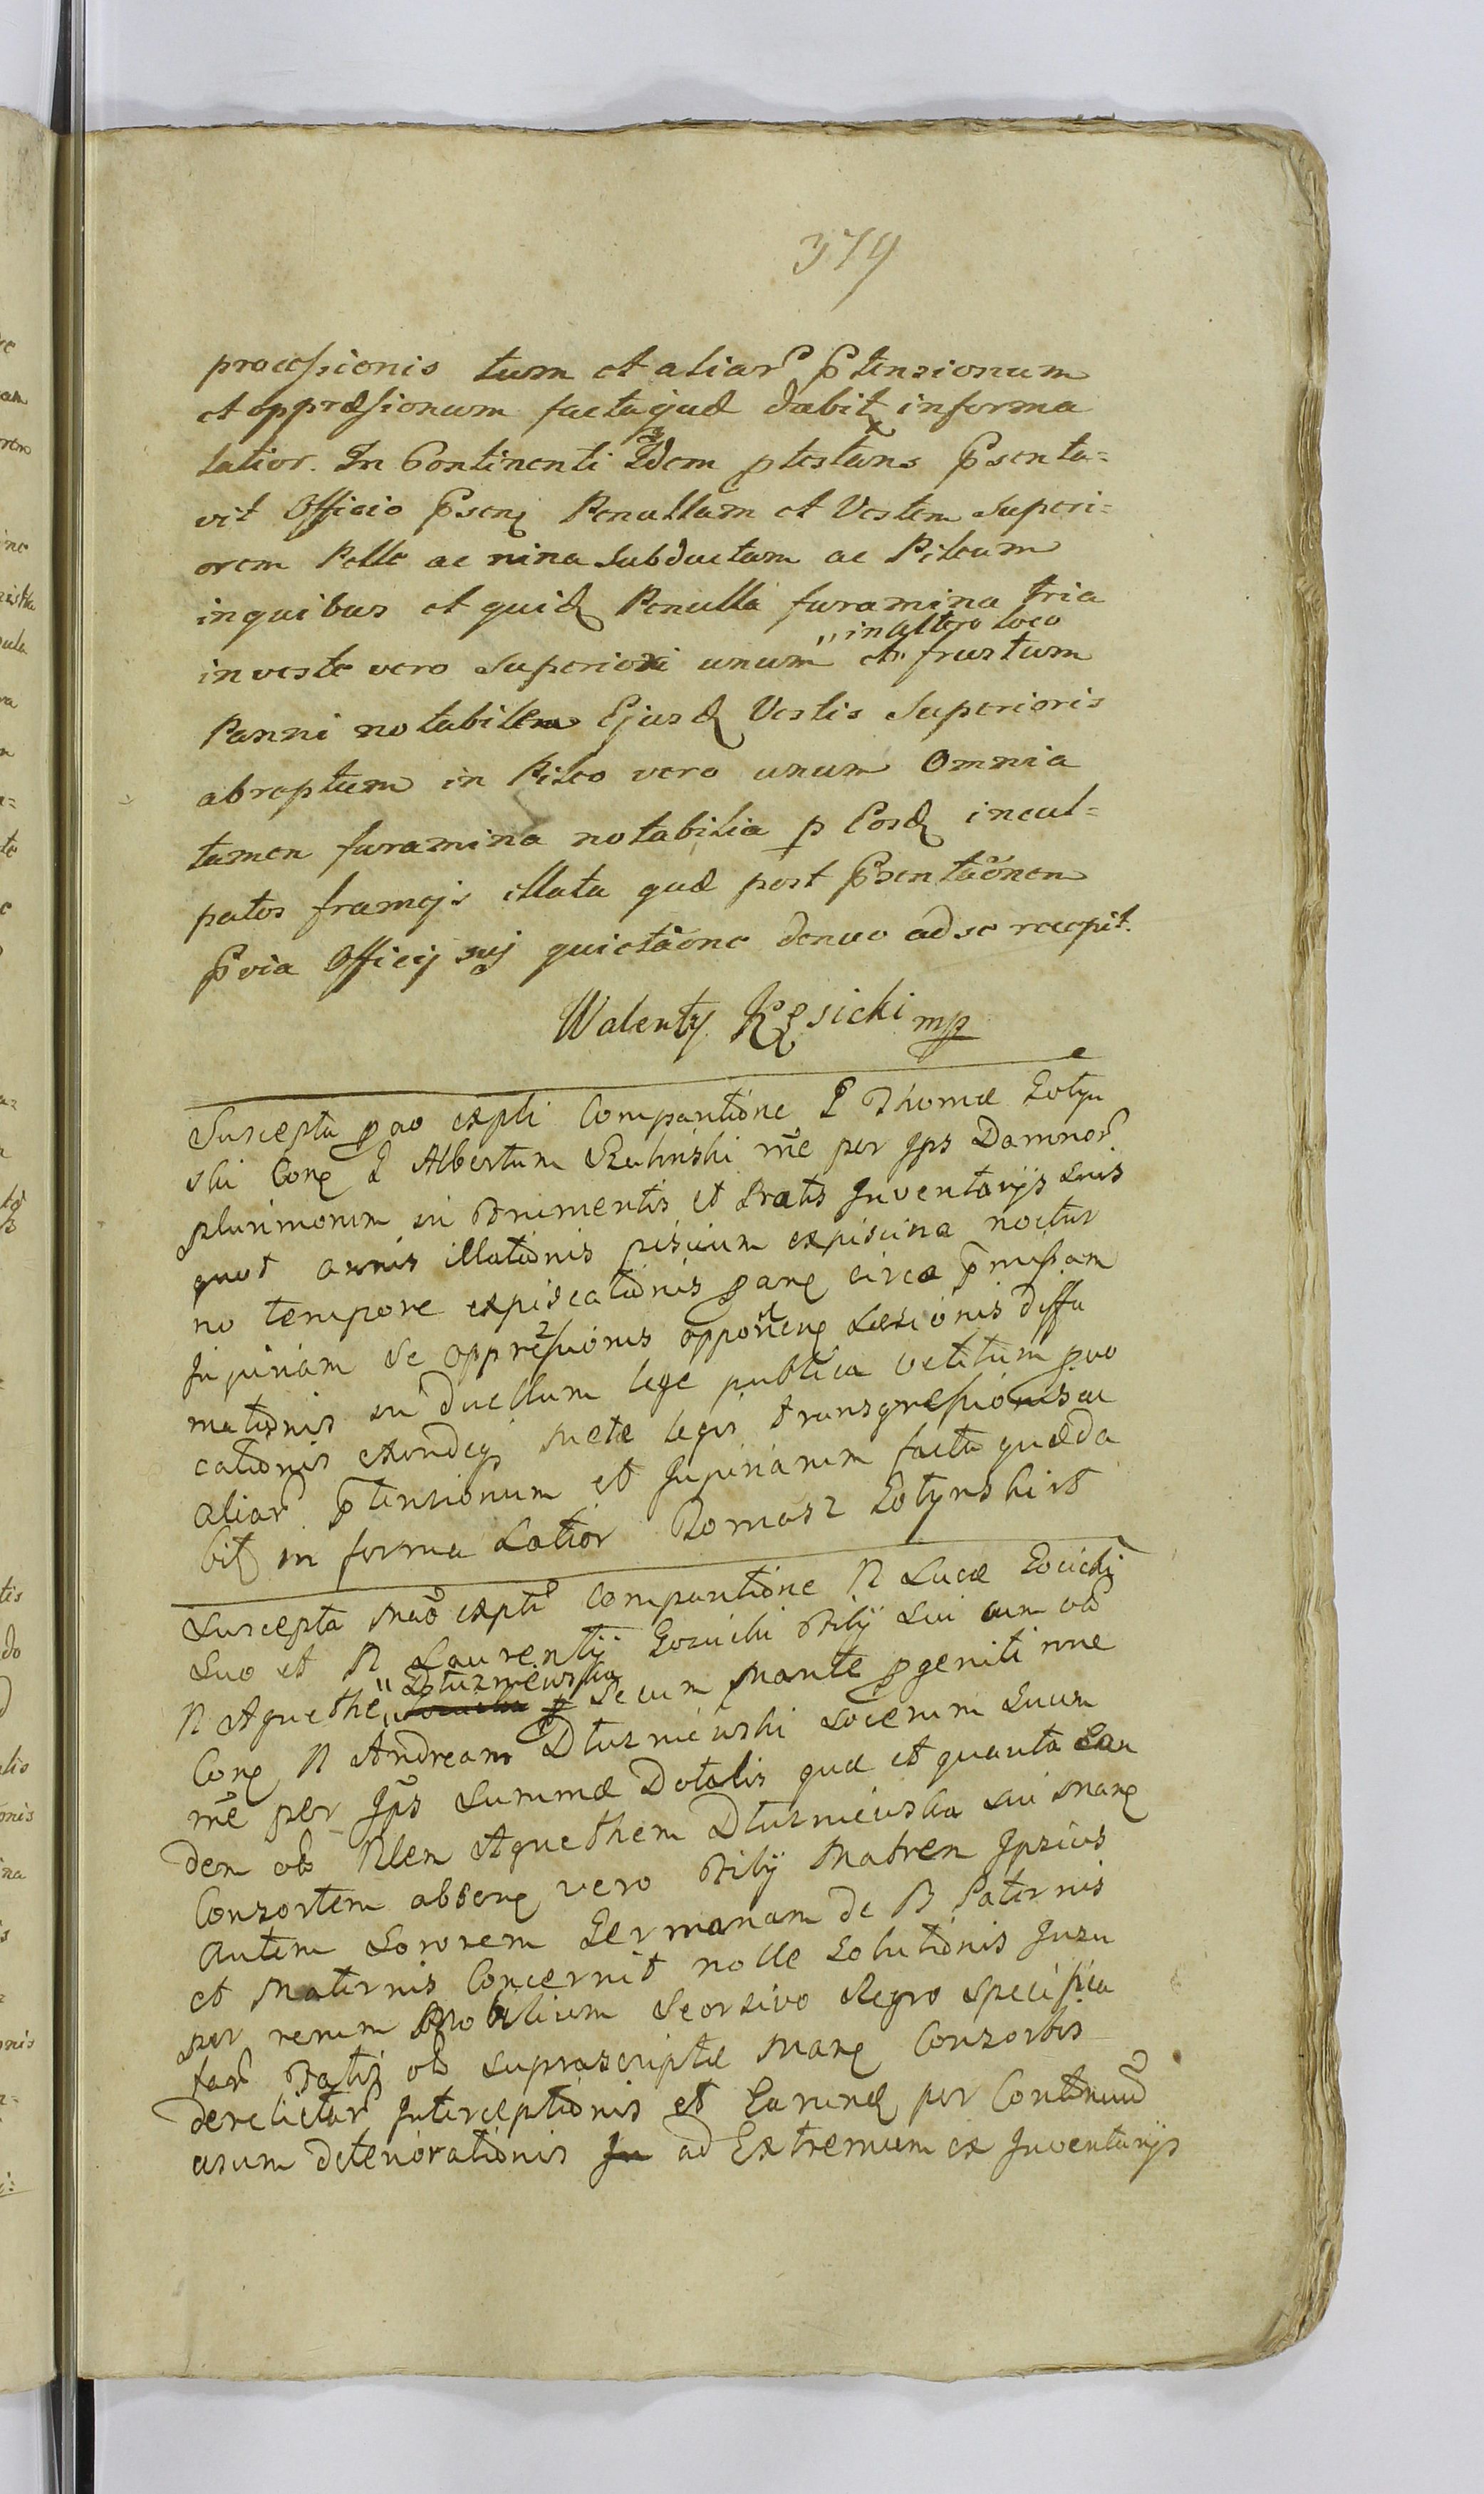 374
processionis tum et aliar ptensionum
et oppræsionum facta quæ dabit in forma
latior. In Continenti Idem ptestans psenta=
vit Officio pseng Penullam et Vestem Superi=
orem Pelle ac nina Subductam ac Pileum
in quibus et quid Penulla furamina tria
in veste vero Superiori unum "in altero loco et frustum
Panni notabilem Ejusd Vestis Superioris
abreptum in Pileo vero unum Omnia
tamen furamina notabilia p Eosd incul=
patos frameis illata quæ post psentaonem
pvia Officij sui quietaone denuo ad se recepit.
Walenty Kęsicki mp
Suscepta pao expti Comparitione Thomæ Łotyn
ski Cong Albertum me per Ips Damnor
plurimorum in Frumentis et Pratis Inventarijs Suis
quot annis illationis piscium ex piscina noctur
no tempore expiscationis pang circa pmissam
Injuriam se oppressionis Læsionis diffa
mationis in duellum lege publica vetitum pvo
cationis legis transgressionis ac
aliar ptensionum et Injuriarum facta quæ da
bit in forma Latior Tomasz Łotynski
Suscepta Mao expti Comparitione N Lucæ
Suo et N Laurentij Filij Sui cum olim
N Agnethe "Dłuzniewska Secum Mante pgeniti nne
Cong N Andream Dłuzniewski Socerum Suum
me per Ips Summæ Dotalis quæ et quanta Ean
dem ol Nlem Agnethem Dłuzniewska sui Mang
Consortem abseng vero Filij Matrem Ipsius
Autem Sororem Germanam de B Paternis
et Maternis Concernit nolle Solutionis Insu
per rerum Mobilium Seorsivo Regro Specifica
tar ol Suprascriptæ Mang Consortis
derelictar Interceptionis et Earund per Continuum
usum deteriorationis ad Extremum ex Inventarijs